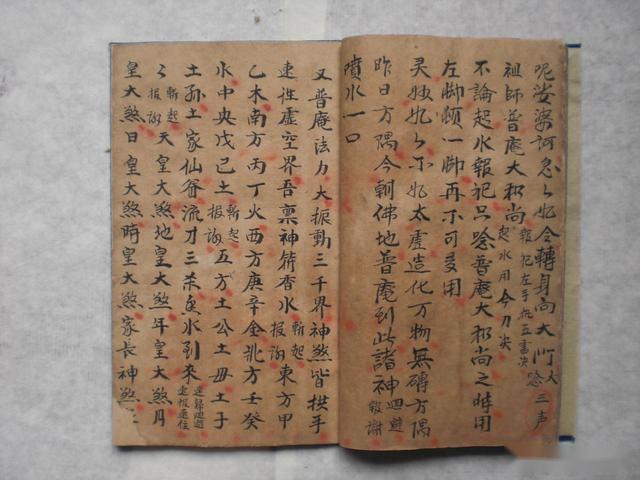 呢娑婆訶急〻如令轉身向大門大唸三声
祖師普庵大和尚報犯左手執五雷决起水用令刀决
不論起水報犯只唸普庵大和尚之時用
左脚頓一脚再不可多用
灵〻如〻不如太虚造化万物無碍方隅
昨日方隅今朝佛地普庵到此諸神廻避報謝
噴水一口
又普庵法力大振動三千界神煞皆拱手
速性虚空界吾禀神符香水斬起報謝東方甲
乙木南方丙丁火西方庚辛金北方壬癸
水中央戊己土斬起報謝五方土公土母土子
土孫土家仙眷流刀三杀魚水到來速歸迴避速報速住
〻斬起報謝天皇大煞地皇大煞年皇大煞月
皇大煞日皇大煞時皇大煞家長神煞一二